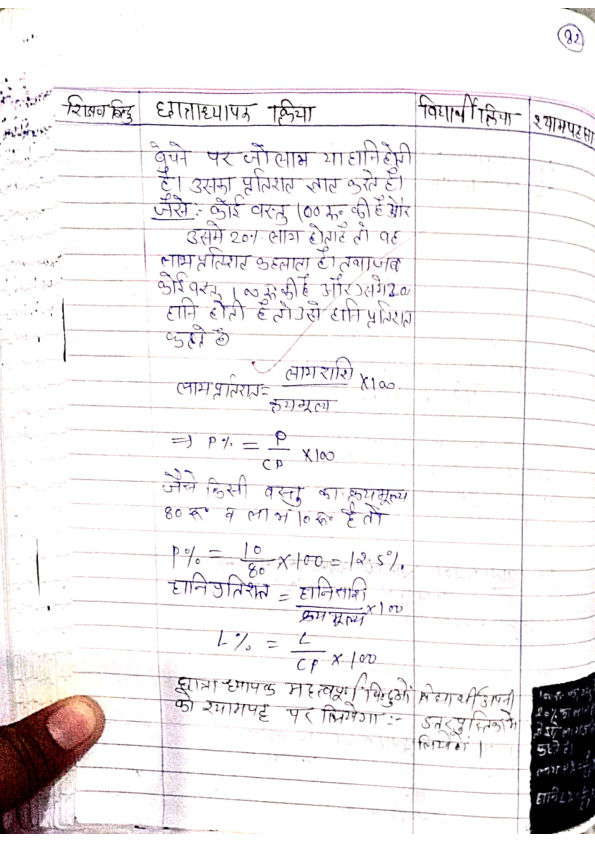 82
शिक्षण बिन्दु छात्राध्यापक क्रिया विद्यार्थी क्रिया श्यामपट सा
बेचने पर जो लाभ या हानि होती
है। उसका प्रतिशत ज्ञात करते है।
जैसे :- कोई वस्तु 100 रू० की है और
उसमे 20% लाभ होता है तो वह
लाभ प्रतिशत कहलाता है। तथा जब
कोई वस्तु 100 रू की है और उसमे 20
हानि होती है तो उसे हानि प्रतिशत
कहते है
लाभ प्रतिशत = लाभ राशि / क्रयमूल्य × 100
=> P% = P / CP × 100
जैसे किसी वस्तु का क्रयमूल्य
80 रू० व लाभ 10 रू० है तो
P% = 10 / 80 × 100 = 12.5%.
हानि प्रतिशत = हानि राशि / क्रय मूल्य × 100
L% = L / CP × 100
छात्राध्यापक महत्वपूर्ण बिन्दुओं विद्यार्थी अपनी
को श्यामपट्ट पर लिखेगा :- उत्तर पुस्तिका मे
लिखेंगे।
कहते है।